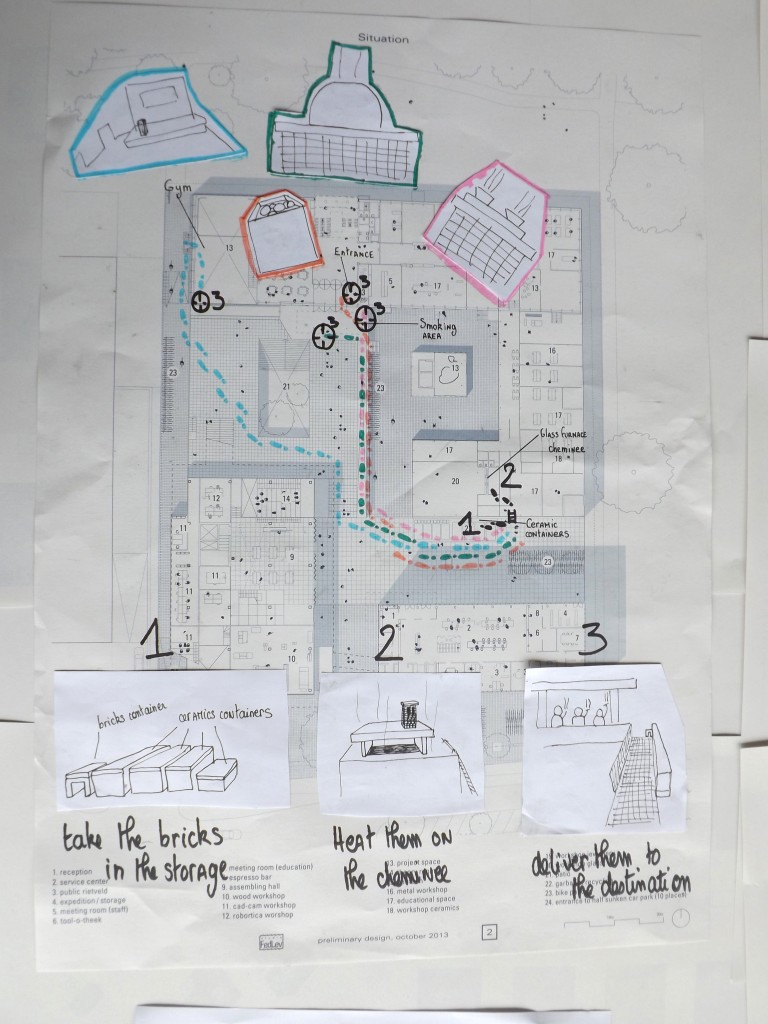 Situation
Gym
13
ENTRANCE
3
3
3
3
5
17
17
13
SMOKING AREA
16
13
23
21
23
17
GLASS FURNACE
cheminee
17
18
20
17
2
12
14
1
CERAMIC
CONTAINERS
11
9
11
23
11
8
4
2
6
7
11
10
3
1
2
3
bricks container
ceramics containers
take the bricks
in the storage
Heat them on
the cheminee
deliver them to
the destination
1. reception
2. service center
3. public rietveld
4. expedition/storage
5. meeting room (staff)
6. tool-o-theek
meeting room (education)
espresso bar
9. assembling hall
10. wood workshop
11. cad-cam workshop
12. robotica worshop
13. project space
16. metal workshop
17. educational space
18. workshop ceramics
24. entrance to half sunken car park (10 places)
FedLev
preliminary design, october 2013
2